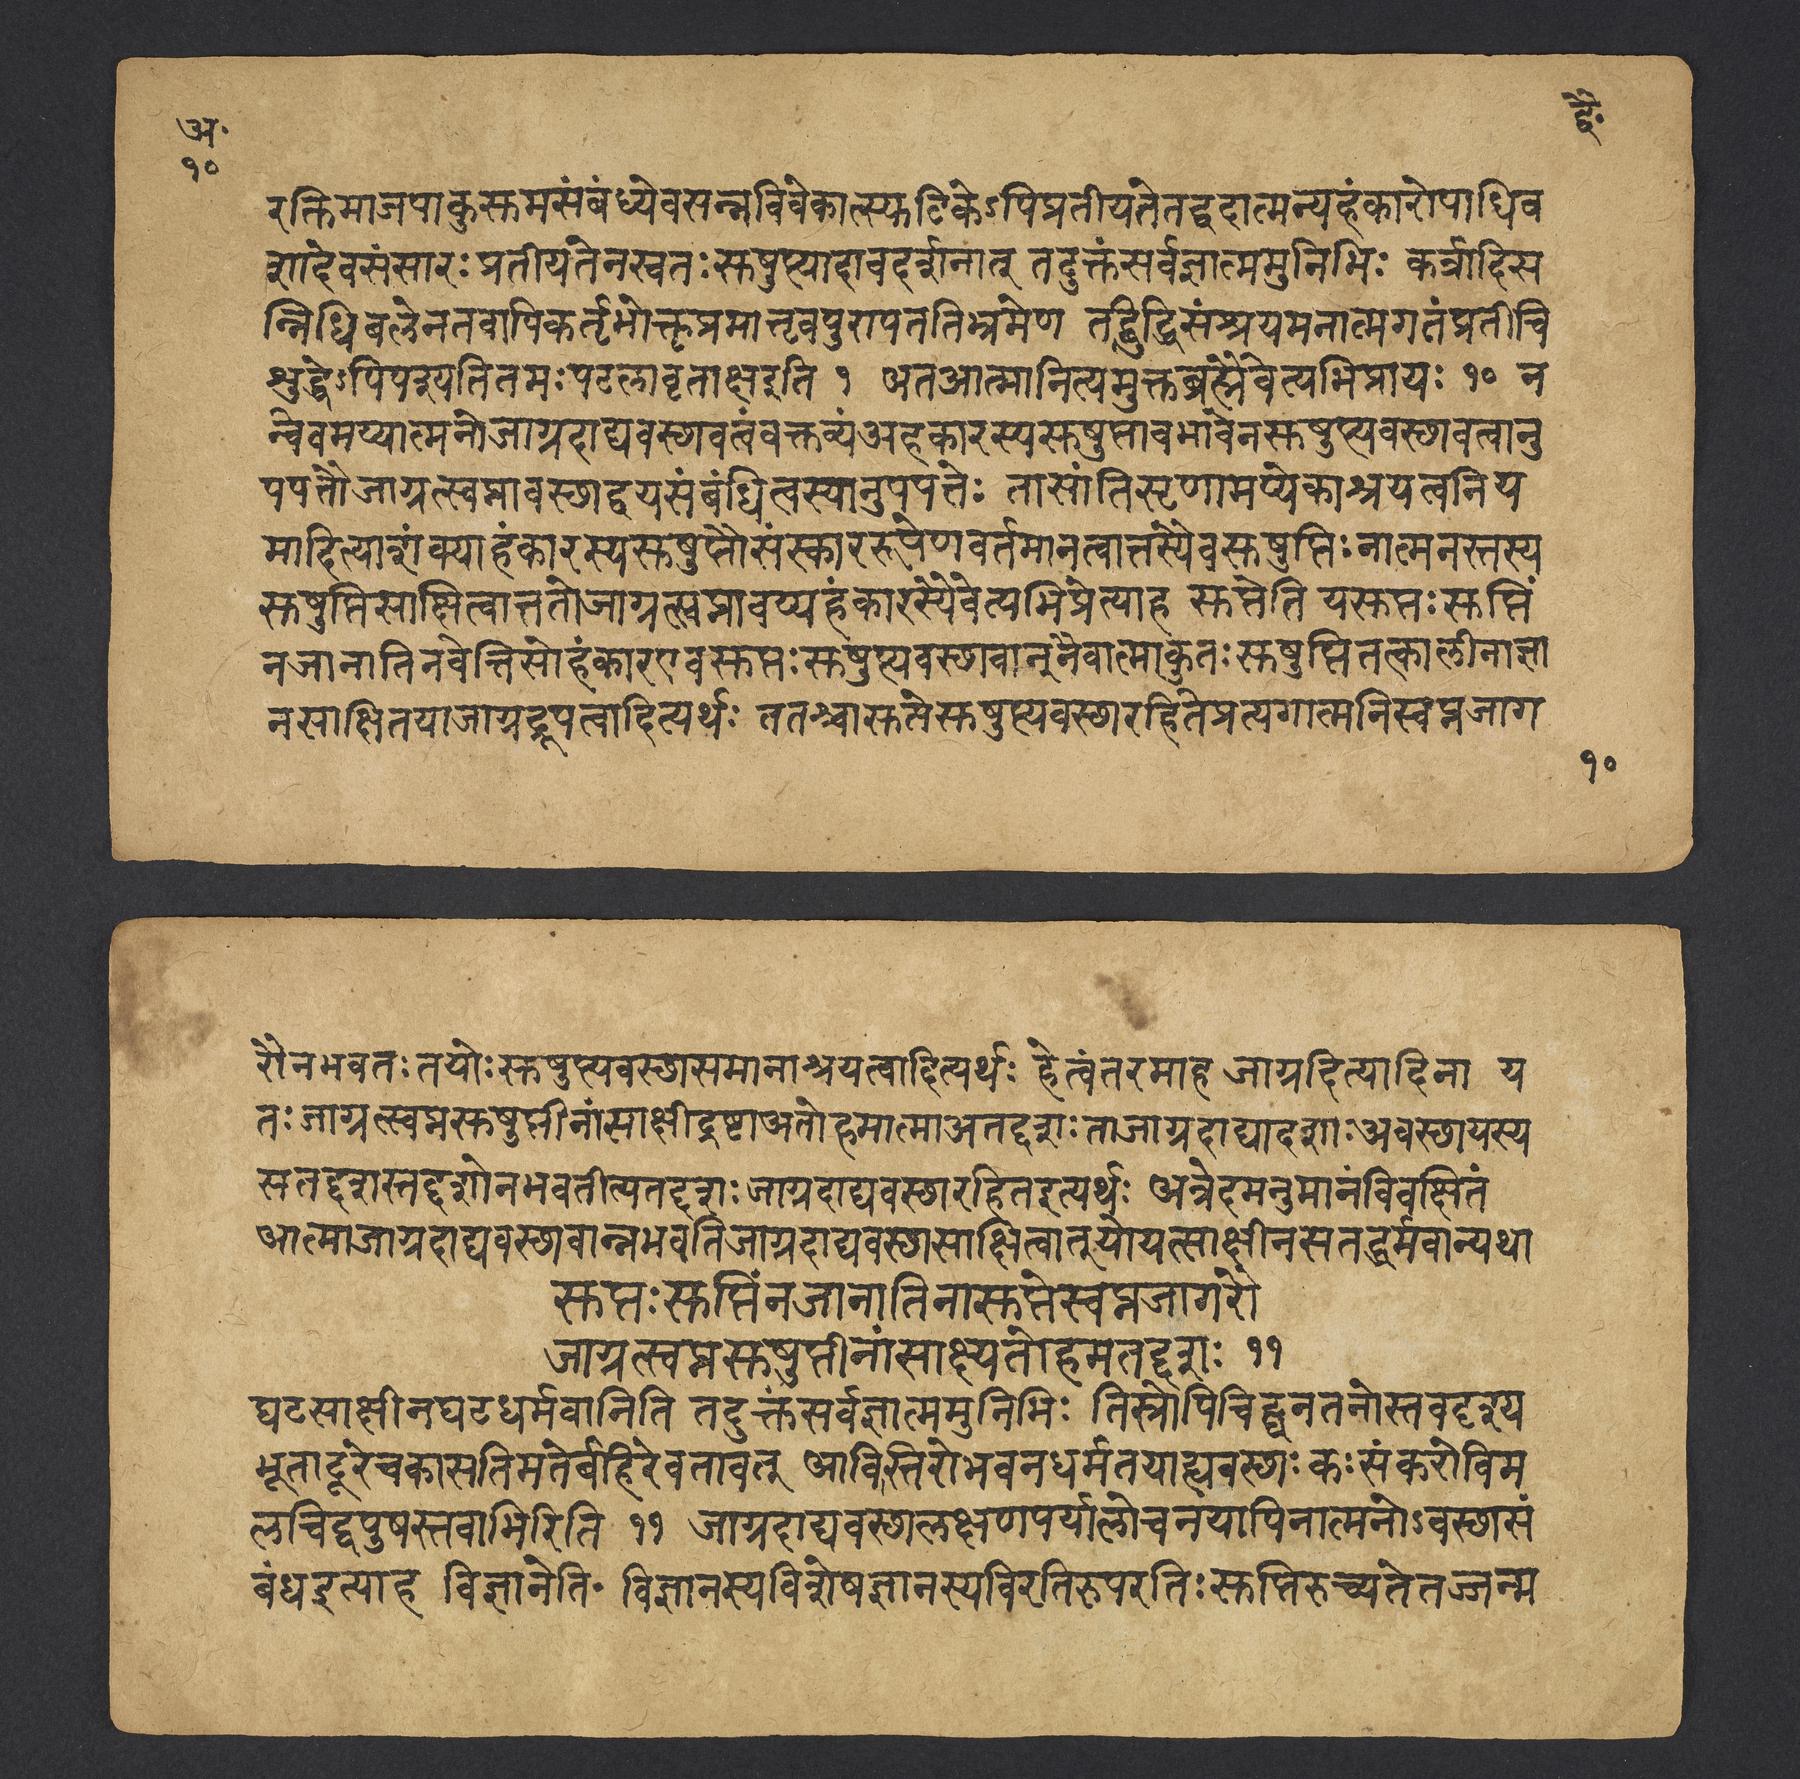 अ॰
द्वै॰
१०
रक्तिमाजपाकुसुमसंबंध्येवसन्नविवेकात्स्फटिकेऽपिप्रतीयतेतद्वदात्मन्यहंकारोपाधिव
शादेवसंसारः प्रतीयतेनस्वतः सुषुप्त्यादावदर्शनात् तदुक्तंसर्वज्ञात्ममुनिभिः कर्त्रादिस
न्निधिबलेनतवापिकर्तृभोक्तृप्रमातृवपुरापततिभ्रमेण तद्बुद्धिसंश्रयमनात्मगतंप्रतीचि
शुद्धेऽपिपश्यतितमःपटलावृताक्षइति १ अतआत्मानित्यमुक्तब्रह्मैवेत्यभिप्रायः १० न
न्वेवमप्यात्मनोजाग्रदाद्यवस्थावत्वंवक्तव्यंअहंकारस्यसुषुप्तावभावेनसुषुप्त्यवस्थावत्वानु
पपत्तौजाग्रत्स्वप्नावस्थाद्वयसंबंधित्वस्यानुपपत्तेः तासांतिसृणामप्येकाश्रयत्वनिय
मादित्याशंक्याहंकारस्यसुषुप्तौसंस्काररूपेणवर्तमानत्वात्तस्यैवसुषुप्तिः नात्मनस्तस्य
सुषुप्तिसाक्षित्वात्ततोजाग्रत्स्वप्नावप्यहंकारस्यैवेत्यभिप्रेत्याह सुप्तेति यसुप्तः सुप्तिं
नजानातिनवेत्तिसोहंकारएवसुप्तः सुषुप्त्यवस्थावान्नैवात्माकुतः सुषुप्तितत्कालीनाज्ञा
नसाक्षितयाजाग्रद्रूपत्वादित्यर्थः ततश्चासुप्तेसुषुप्त्यवस्थारहितेप्रत्यगात्मनिस्वप्नजाग
१०
रौनभवतः तयोः सुषुप्त्यवस्थासमानाश्रयत्वादित्यर्थः हेत्वंतरमाह जाग्रदित्यादिना य
तः जाग्रत्स्वप्नसुषुप्तीनांसाक्षीद्रष्टाअतोहमात्माअतद्दशः ताजाग्रदाद्यादशाः अवस्थायस्य
सतद्दशस्तद्दशोनभवतीत्यतद्दशः जाग्रदाद्यवस्थारहितइत्यर्थः अत्रेदमनुमानंविवक्षितं
आत्माजाग्रदाद्यवस्थावान्नभवतिजाग्रदाद्यवस्थासाक्षित्वात्योयत्साक्षीनसतद्धर्मवान्यथा
सुप्तः सुप्तिंनजानातिनासुप्तेस्वप्नजागरौ
जाग्रत्स्वप्नसुषुप्तीनांसाक्ष्यतोहमतद्दशः ११
घटसाक्षीनघटधर्मवानिति तदुक्तंसर्वज्ञात्ममुनिभिः तिस्रोपिचिद्घनतनोस्तवदृश्य
भूतादूरेचकासतिमतेर्बहिरेवतावत् आविस्तिरोभवनधर्मतयाह्यवस्थाः कः संकरोविम
लचिद्वपुषस्तवाभिरिति ११ जाग्रदाद्यवस्थालक्षणपर्यालोचनयापिनात्मनोऽवस्थासं
बंधइत्याह विज्ञानेति॰ विज्ञानस्यविशेषज्ञानस्यविरतिरुपरतिः सुप्तिरुच्यतेतज्जन्म